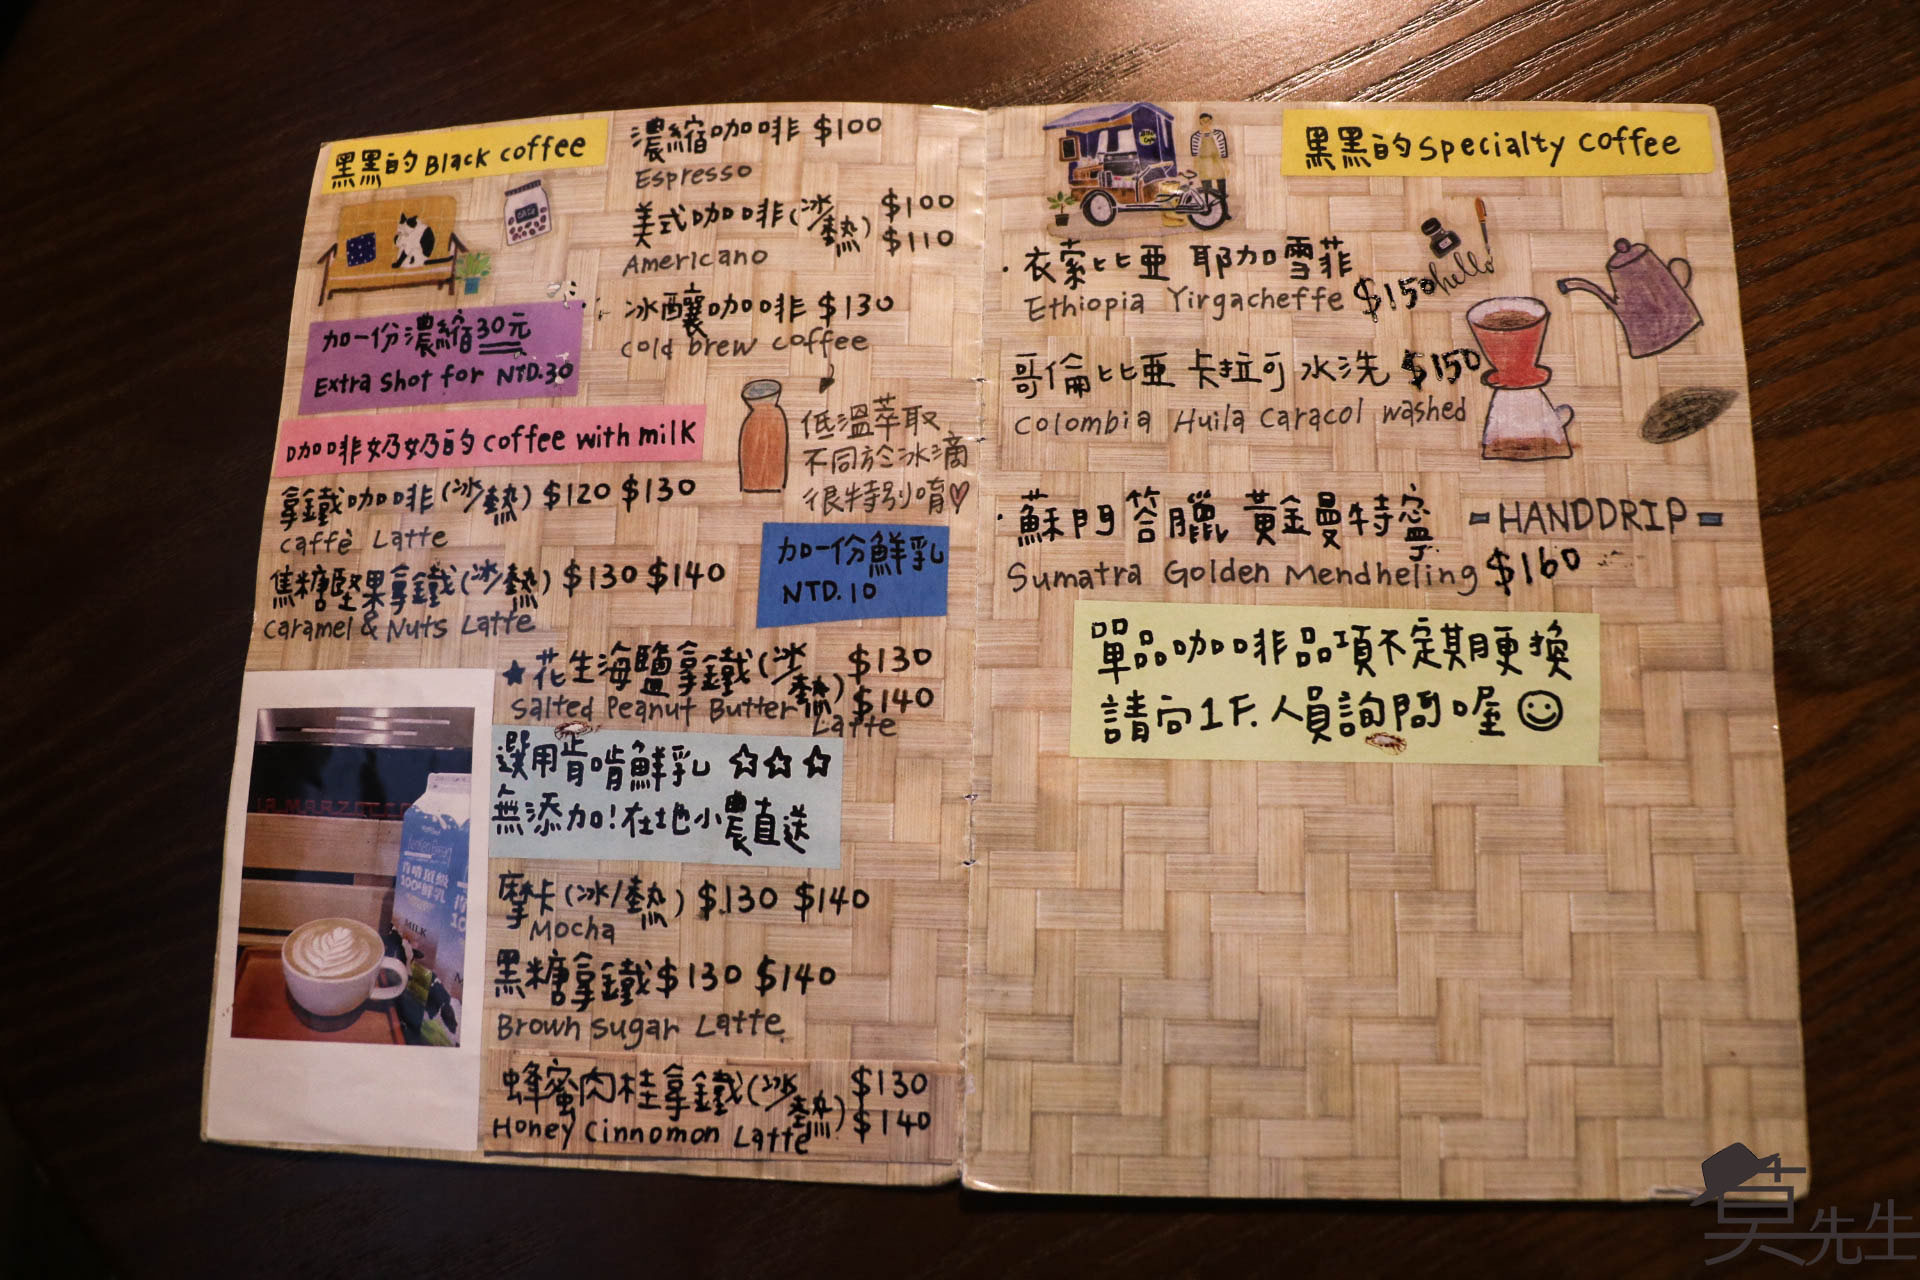 黑黑的 Black coffee
濃縮咖啡 $100
Espresso
美式咖啡(冰/熱) $100 $110
Americano
冰釀咖啡 $130
cold brew coffee
低溫萃取
不同於冰滴
很特別唷♡
加一份濃縮30元
Extra shot for NTD.30
咖啡奶奶的 coffee with milk
拿鐵咖啡(冰/熱) $120 $130
caffè Latte
焦糖堅果拿鐵(冰/熱) $130 $140
caramel & Nuts Latte
加一份鮮乳
NTD.10
★花生海鹽拿鐵(冰/熱) $130 $140
Salted Peanut Butter Latte
選用肯啃鮮乳 ☆☆☆
無添加!在地小農直送
肯啃頂級
100%鮮乳
MILK
摩卡(冰/熱) $130 $140
Mocha
黑糖拿鐵 $130 $140
Brown sugar Latte
蜂蜜肉桂拿鐵(冰/熱) $130 $140
Honey Cinnomon Latte
黑黑的 specialty coffee
hello
·衣索比亞 耶加雪菲
Ethiopia Yirgacheffe $150
哥倫比亞 卡拉可 水洗 $150
Colombia Huila Caracol washed
·蘇門答臘 黃金曼特寧
-HANDDRIP-
Sumatra Golden Mendheling $160
單品咖啡品項不定期更換
請向1F.人員詢問喔☺
莫先生